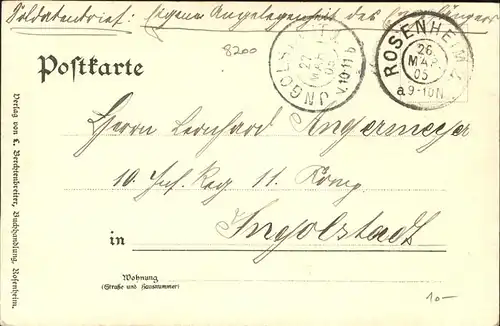 Soldatenbrief: Eigene Angelegenheit des Empfängers
8200
Postkarte
INGOLST
27
MAR
05
V.10-11 b
ROSENHEIM
26
MAR
05
a.9-10N.
Herrn Leonhard Angermeyer
10. Inf. Reg. 11. Komp
in Ingolstadt
Wohnung
(Straße und Hausnummer)
10-
Verlag von L. Berchtenbreiter, Buchhandlung, Rosenheim.